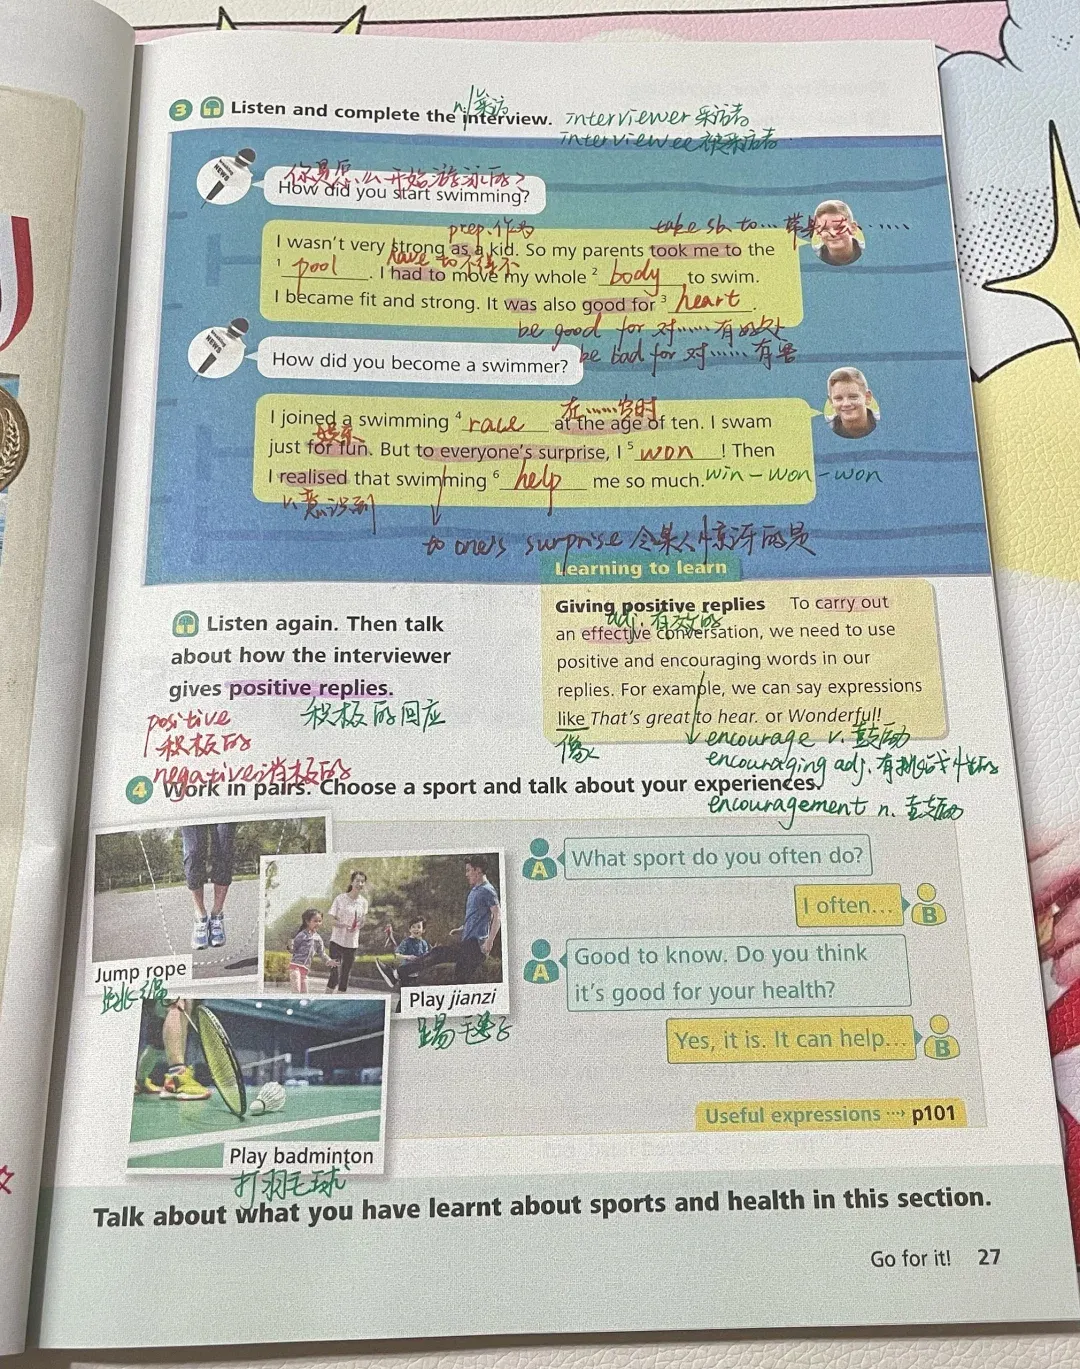 3 Listen and complete the interview.
n. 采访
interviewer 采访者
interviewee 被采访者
NEWS
你是怎么开始游泳的?
How did you start swimming?
prep. 作为
take sb. to… 带某人去……
I wasn't very strong as a kid. So my parents took me to the
have to 不得不
1 pool. I had to move my whole 2 body to swim.
I became fit and strong. It was also good for 3 heart.
be good for 对……有好处
be bad for 对……有害
NEWS
How did you become a swimmer?
在……岁时
I joined a swimming 4 race at the age of ten. I swam
just for fun. But to everyone's surprise, I 5 won! Then
I realised that swimming 6 help me so much.
win – won – won
v. 意识到
to one's surprise 令某人惊讶的是
Learning to learn
Giving positive replies To carry out
adj. 有效的
an effective conversation, we need to use
positive and encouraging words in our
replies. For example, we can say expressions
like That's great to hear. or Wonderful!
像
encourage v. 鼓励
encouraging adj.
encouragement n. 鼓励
Listen again. Then talk
about how the interviewer
gives positive replies.
积极的回应
positive
积极的
negative 消极的
4 Work in pairs. Choose a sport and talk about your experiences.
Jump rope
跳绳
Play jianzi
踢毽子
Play badminton
打羽毛球
A What sport do you often do?
I often… B
A Good to know. Do you think
it's good for your health?
Yes, it is. It can help… B
Useful expressions ····› p101
Talk about what you have learnt about sports and health in this section.
Go for it! 27